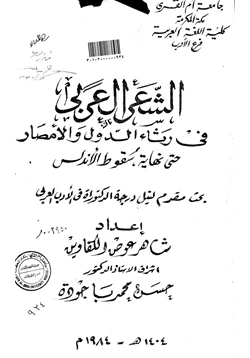 جامعة أم القرى
مكة المكرمة
كلية اللغة العربية
فرع الأدب
الشعر العربي
في رثاء الدول والأمصار
حتى نهاية سقوط الأندلس
بحث مقدم لنيل درجة الدكتوراة في الأدب العربي
إعداد
شاهر عوض الكفاوين
اشراف الاستاذ الدكتور
حسن محمد باجودة
١٤٠٤ هـ - ١٩٨٤ م
٩٢٤